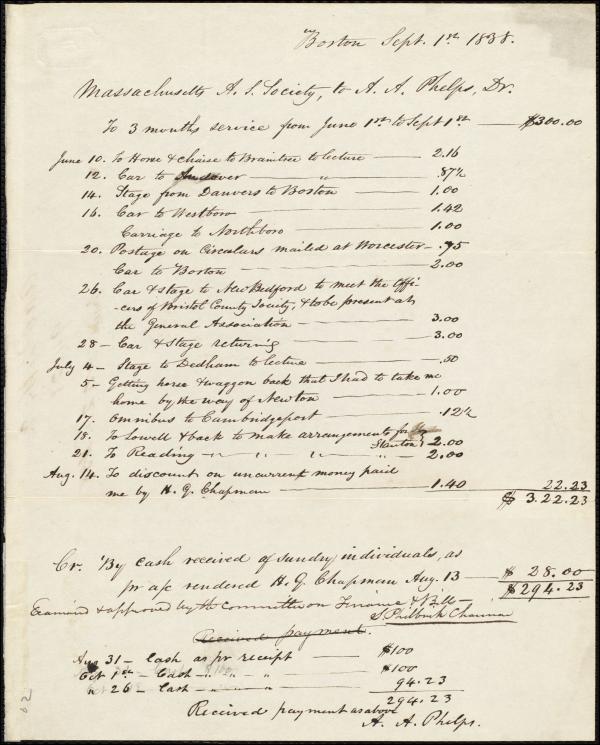 Boston Sept. 1st 1838.
Massachusetts A. S. Society, to A. A. Phelps, Dr.
To 3 months service from June 1st to Sept 1st — $300.00
June 10. To Horse & chaise to Braintree to lecture — 2.16
12. Car to Andover — " — .87½
14. Stage from Danvers to Boston — 1.00
16. Car to Westboro — 1.42
Carriage to Northboro — 1.00
20. Postage on Circulars mailed at Worcester — .75
Car to Boston — 2.00
26. Car & stage to New Bedford to meet the Offi-
cers of Bristol County Society, & to be present at
the General Association — 3.00
28 — Car & Stage returning — 3.00
July 4 — Stage to Dedham to lecture — .50
5 — Getting horse & waggon back that I had to take me
home by the way of Newton — 1.00
17. Omnibus to Cambridgeport — .12½
18. To Lowell & back to make arrangements for
Stanton 2.00
21. To Reading — " — " " " — " — 2.00
Aug. 14. To discount on uncurrent money paid
me by H. G. Chapman — 1.40 22.23
$ 3.22.23
Cr. By cash received of sundry individuals, as
pr a/c rendered H. G. Chapman Aug. 13 — $ 28.00
$294.23
Examined & approved by the Committee on Finance & Bills —
S. Philbrick Chairman
Received payment.
Aug 31 — Cash as pr receipt — $100
Oct 1st — Cash — " — " — " $100
26 — Cash — " — " — " 94.23
294.23
Received payment as above
A. A. Phelps.